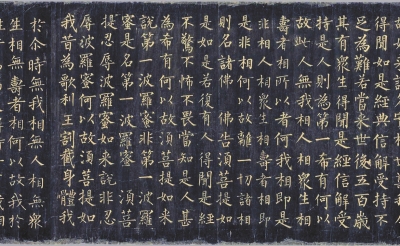 故如來說名實相世尊我今
得聞如是經典信解受持不
足為難若當來世後五百歲
其有眾生得聞是經信解受
持是人則為第一希有何以
故此人無我相人相眾生相
壽者相所以者何我相即是
非相人相眾生相壽者相即
是非相何以故離一切諸相
則名諸佛 佛告須菩提如
是如是若復有人得聞是經
不驚不怖不畏當知是人甚
為希有何以故須菩提如來
說第一波羅蜜非第一波羅
蜜是名第一波羅蜜 須菩
提忍辱波羅蜜如來說非忍
辱波羅蜜何以故須菩提如
我昔為歌利王割截身體我
於尒時無我相無人相無眾
生相無壽者相何以故我於